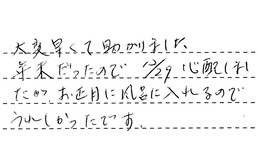 大変早くて助かりました、
年末だったので 12/29 心配しまし
たが、お正月に風呂に入れるので
うれしかったです。